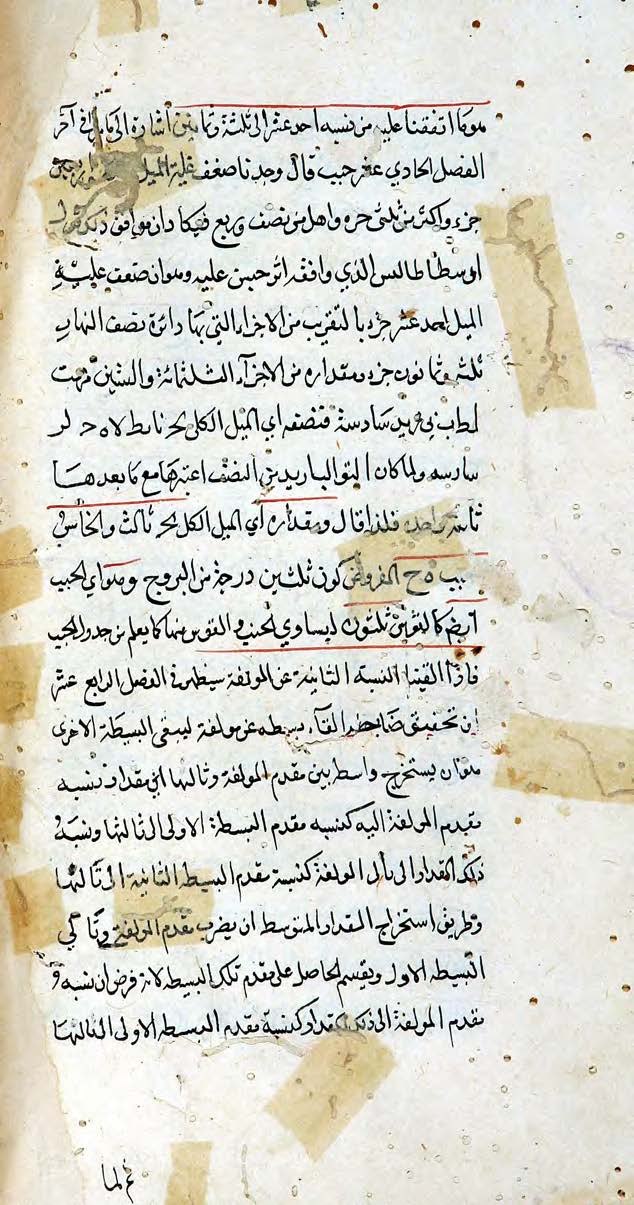 هو ما اتفقنا عليه من نسبه احد عشر الى ثلثة وثمانين اشارة الى ما مر فى آخر
الفصل الحادي عشر حيث قال وجدنا ضعف غاية الميل
جزء واكثر من ثلثى جزء واقل من نصف وربع فيكا دان يوافق ذلك قول
اوسطاطالس الذي وافقه ابرخس عليه وهو ان ضعف غايـة
الميل احد عشر جزء بالتقريب من الاجزاء التي بها دائرة نصف النهار
ثلثه وثمانون جزء ومقداره من الاجزآء الثلثمائة والستين
سادسة فنصفه اي الميل الكلى
سادسه ولما كان التوالب اريد من النصف اعتبرها مع ما بعدها
ثانيه واحدة فلذا قال ومقداره اي الميل الكلى ثالث والخامس
المفروض كون ثلثين درجة من البروج وهو اي الجيب
ايضا كالقوس ثلثون ليساوي الجيب والقوس منها كما يعلم من جدول الجيب
فاذا القينا النسبة الثانية عن المولفة سيظهر في الفصل الرابع عشر
ان تحقيق ضابطه القآء بسيطه عن مولفة ليبقى البسيطة الاخرى
هو ان يستخرج واسط بين مقدم المولفة وتاليها اي مقدار نسبه
مقدم المولفة اليه كنسبه مقدم البسيطة الاولى الى تاليها ونسبة
ذلك المقدار الى تالى المولفة كنسبة مقدم البسيطه الثانية الى تاليها
وطريق استخراج المقدار المتوسط ان يضرب مقدم المولفة وتالي
البسيطه الاولى ويقسم الحاصل على مقدم تلك البسيطه لانه فرض ان نسبه
مقدم المولفة الى ذلك المقدار كنسبة مقدم البسيطه الاولى الى تاليها
ثم لما